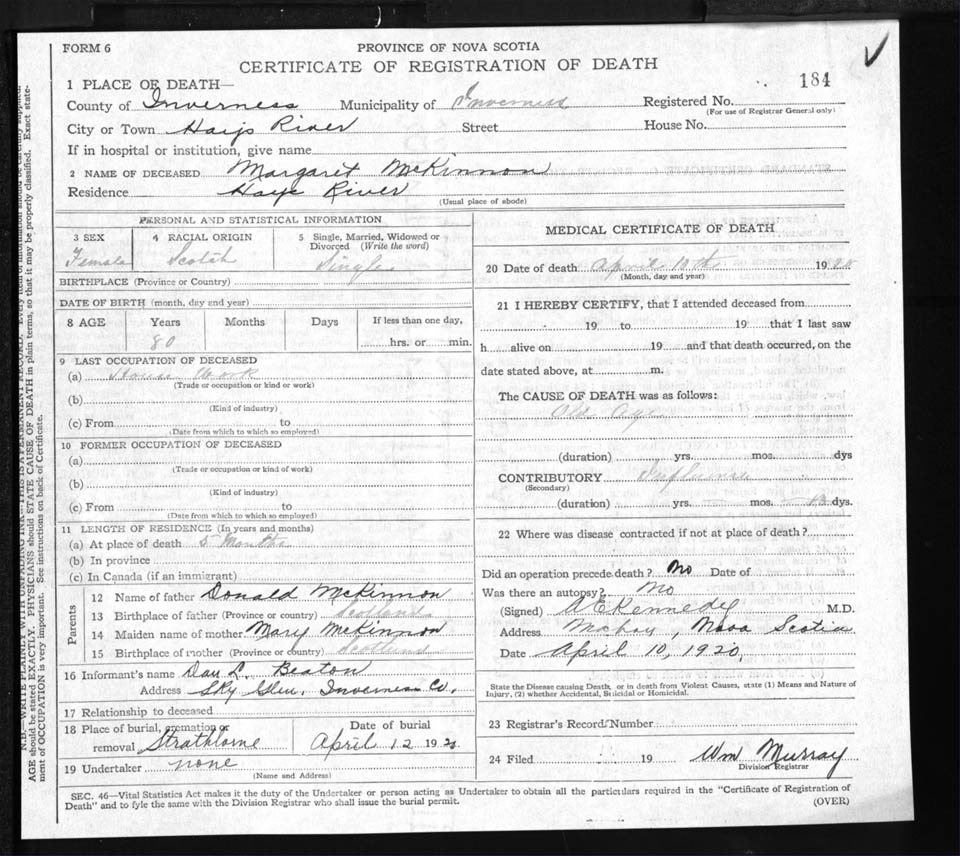 FORM 6
PROVINCE OF NOVA SCOTIA
CERTIFICATE OF REGISTRATION OF DEATH
184
1 PLACE OF DEATH—
County of Inverness Municipality of Inverness Registered No.
(For use of Registrar General only)
City or Town Hays River Street House No.
If in hospital or institution, give name
2 NAME OF DECEASED Margaret McKinnon
Residence Hays River
(Usual place of abode)
PERSONAL AND STATISTICAL INFORMATION
3 SEX 4 RACIAL ORIGIN 5 Single, Married, Widowed or Divorced (Write the word)
Female Scotch Single
BIRTHPLACE (Province or Country)
DATE OF BIRTH (month, day and year)
8 AGE Years Months Days If less than one day,
80 hrs. or min.
9 LAST OCCUPATION OF DECEASED
(a) House Work
(Trade or occupation or kind or work)
(b)
(Kind of industry)
(c) From to
(Date from which to which so employed)
10 FORMER OCCUPATION OF DECEASED
(a)
(Trade or occupation or kind of work)
(b)
(Kind of industry)
(c) From to
(Date from which to which so employed)
11 LENGTH OF RESIDENCE (In years and months)
(a) At place of death 5 Months
(b) In province
(c) In Canada (if an immigrant)
Parents
12 Name of father Donald McKinnon
13 Birthplace of father (Province or country) Scotland
14 Maiden name of mother Mary McKinnon
15 Birthplace of mother (Province or country) Scotland
16 Informant's name Dan L. Beaton
Address Sky Glen, Inverness Co.
17 Relationship to deceased
18 Place of burial, cremation or removal Strathlorne Date of burial April 12 1920
19 Undertaker none
(Name and Address)
MEDICAL CERTIFICATE OF DEATH
20 Date of death April 10th 1920
(Month, day and year)
21 I HEREBY CERTIFY, that I attended deceased from
19 to 19 that I last saw
h alive on 19 and that death occurred, on the
date stated above, at m.
The CAUSE OF DEATH was as follows:
Old Age
(duration) yrs. mos. dys
CONTRIBUTORY Influenza
(Secondary)
(duration) yrs. mos. dys.
22 Where was disease contracted if not at place of death?
Did an operation precede death? No Date of
Was there an autopsy? No
(Signed) A E Kennedy M.D.
Address Mabou, Nova Scotia
Date April 10, 1920.
State the Disease causing Death, or in death from Violent Causes, state (1) Means and Nature of
Injury, (2) whether Accidental, Suicidal or Homicidal.
23 Registrar's Record Number
24 Filed 19 Wm Murray
Division Registrar
SEC. 46—Vital Statistics Act makes it the duty of the Undertaker or person acting as Undertaker to obtain all the particulars required in the "Certificate of Registration of
Death" and to fyle the same with the Division Registrar who shall issue the burial permit. (OVER)
AGE should be stated EXACTLY. PHYSICIANS should STATE CAUSE OF DEATH in plain terms, so that it may be properly classified. Exact state-
ment of OCCUPATION is very important. See instructions on back of Certificate.